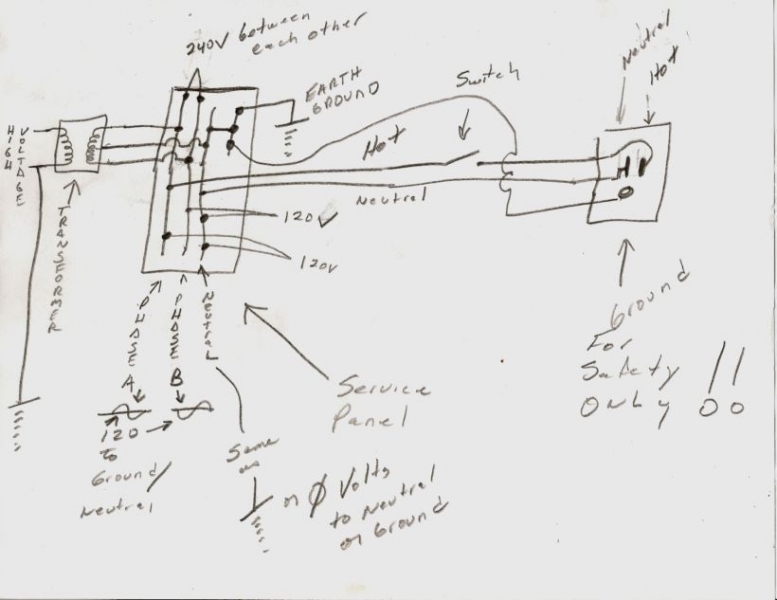 240V between
each other
EARTH
GROUND
Switch
Neutral
Hot
HIGH
VOLTAGE
Hot
Neutral
120V
120V
TRANSFORMER
PHASE A
PHASE B
NEUTRAL
120
to
Ground/
Neutral
Service
Panel
Same
as
or Ø Volts
to Neutral
or Ground
Ground
For
Safety
ONLY !!